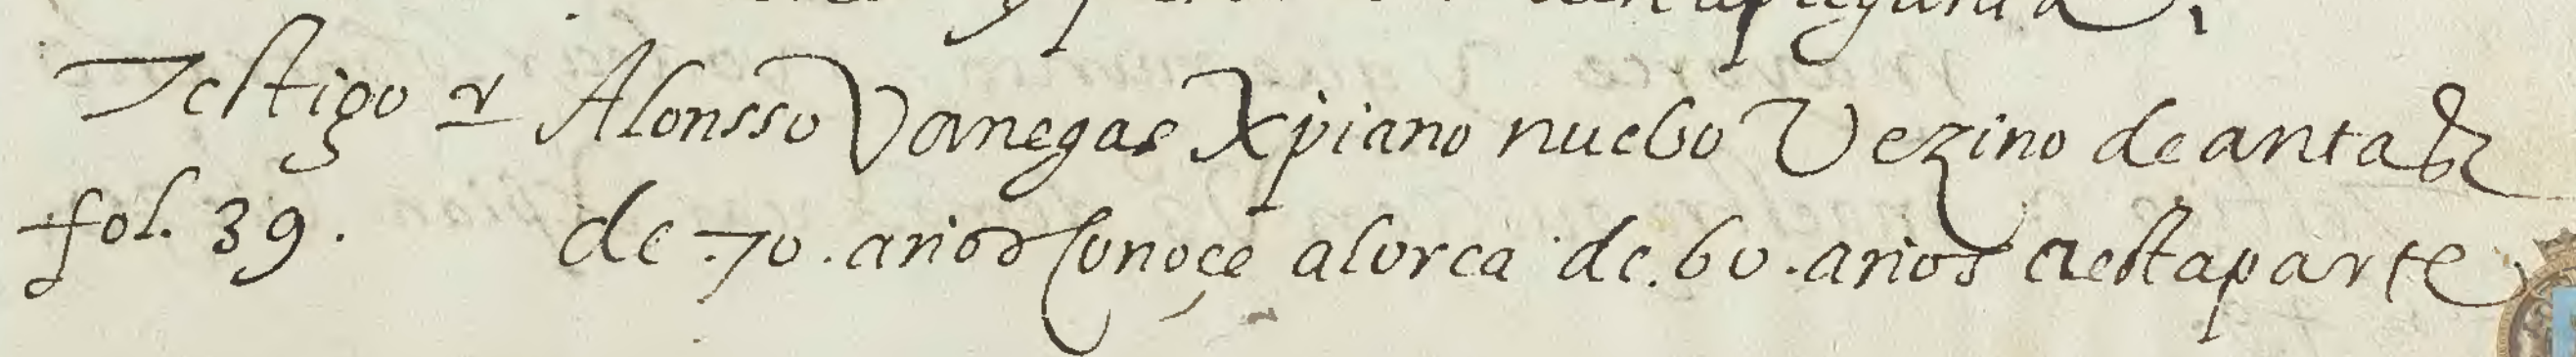 pregunta.
Testigo 1 Alonsso Vanegas Xpiano nuebo Vezino de antas
fol. 39. de 70. años Conoçe a lorca de. 60. años a esta parte